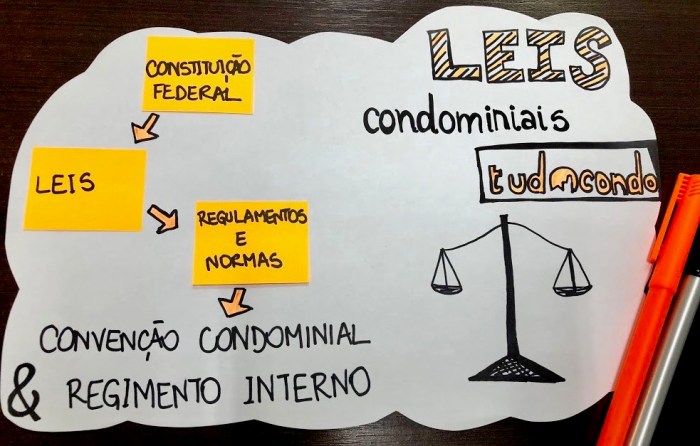 CONSTITUIÇÃO
FEDERAL
LEIS
REGULAMENTOS
E
NORMAS
CONVENÇÃO CONDOMINIAL
& REGIMENTO INTERNO
LEIS
condominiais
tudo condo